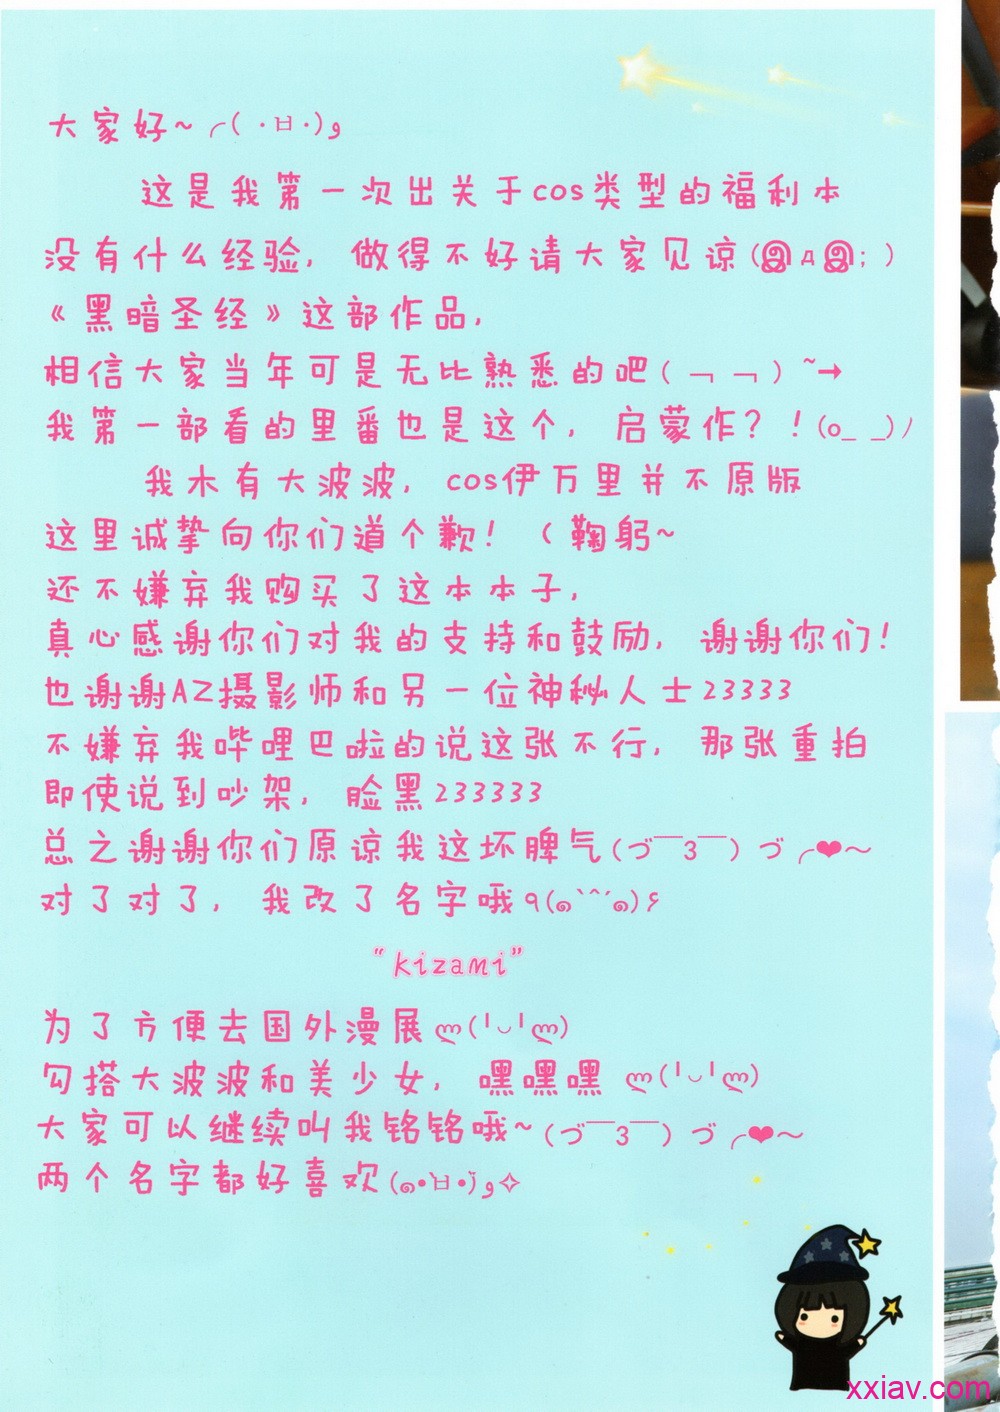 大家好~╭( ･ㅂ･)و
这是我第一次出关于cos类型的福利本
没有什么经验，做得不好请大家见谅(இдஇ; )
《黑暗圣经》这部作品，
相信大家当年可是无比熟悉的吧( ￢ ￢ ) ~→
我第一部看的里番也是这个，启蒙作？！(o_ _)ﾉ
我木有大波波，cos伊万里并不原版
这里诚挚向你们道个歉！（鞠躬~
还不嫌弃我购买了这本本子，
真心感谢你们对我的支持和鼓励，谢谢你们！
也谢谢AZ摄影师和另一位神秘人士23333
不嫌弃我哔哩巴啦的说这张不行，那张重拍
即使说到吵架，脸黑233333
总之谢谢你们原谅我这坏脾气(づ￣3￣) づ╭❤～
对了对了，我改了名字哦٩(๑`^´๑)۶
“kizami”
为了方便去国外漫展ლ(╹◡╹ლ)
勾搭大波波和美少女，嘿嘿嘿 ლ(╹◡╹ლ)
大家可以继续叫我铭铭哦~(づ￣3￣) づ╭❤～
两个名字都好喜欢(๑•̀ㅂ•́)و✧
xxiav.com